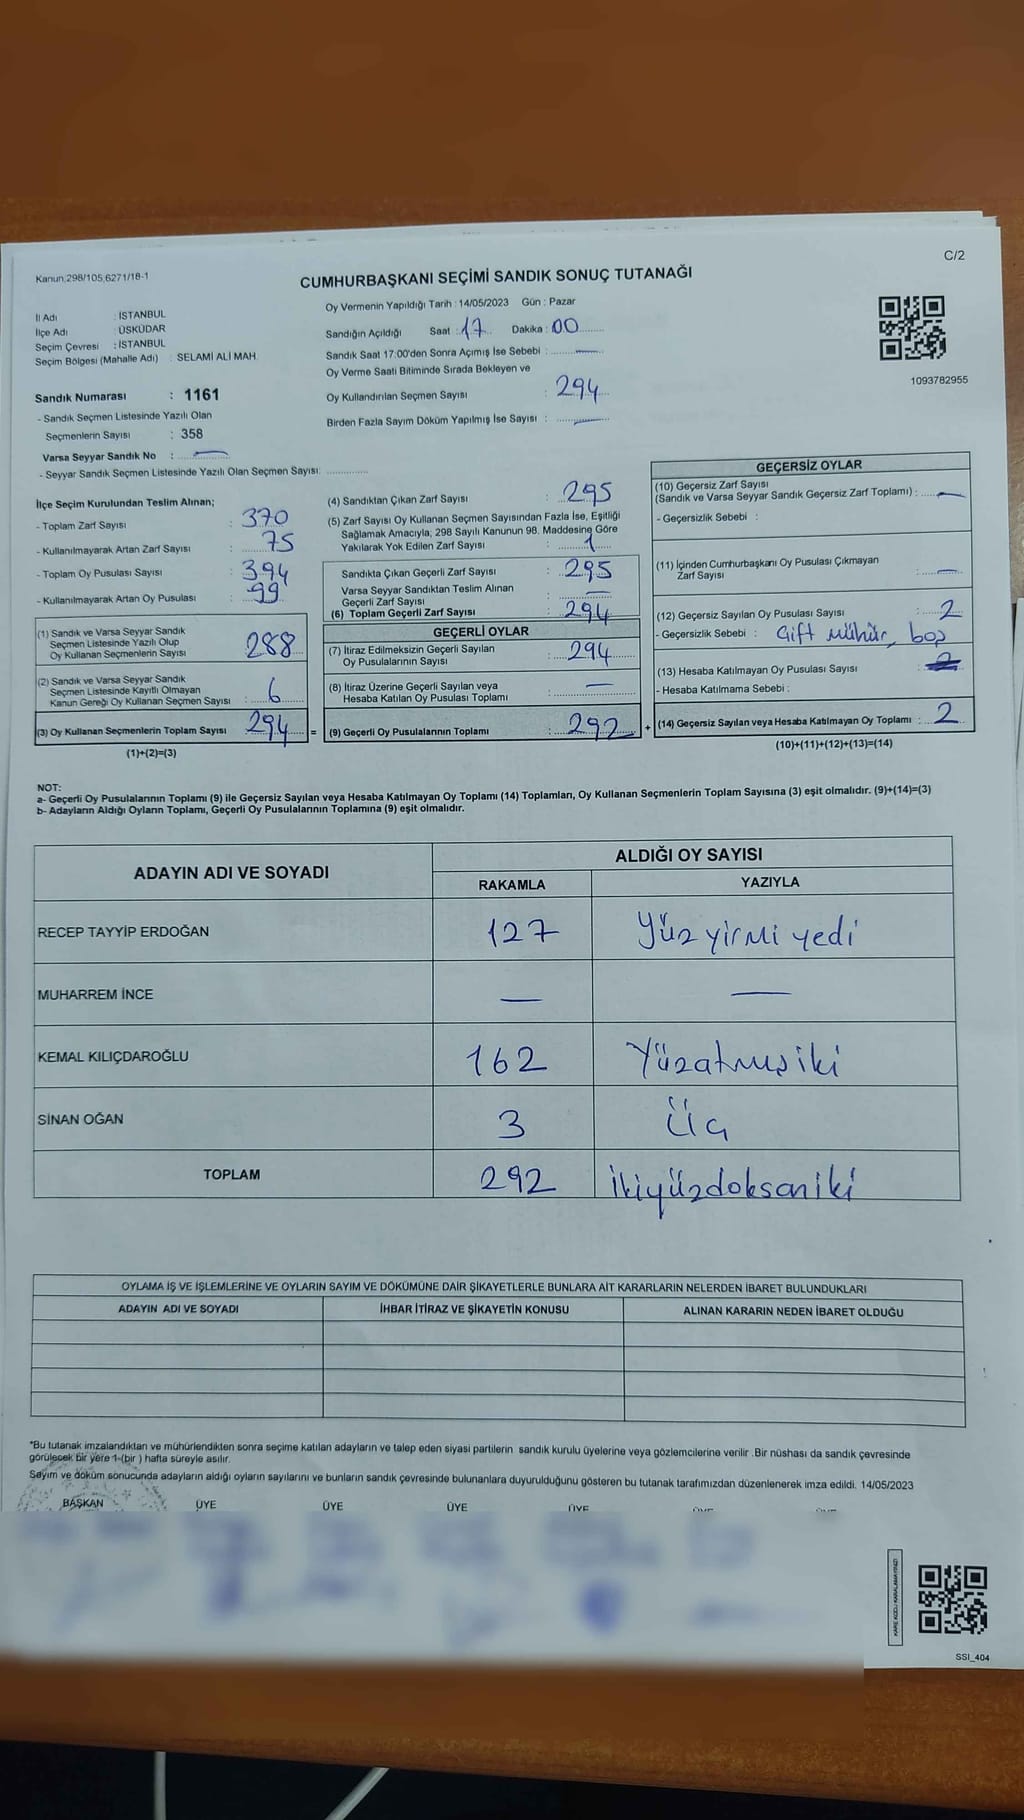 Kanun:298/105,6271/18-1
C/2
CUMHURBAŞKANI SEÇİMİ SANDIK SONUÇ TUTANAĞI
İl Adı : İSTANBUL
İlçe Adı : ÜSKÜDAR
Seçim Çevresi : İSTANBUL
Seçim Bölgesi (Mahalle Adı) : SELAMİ ALİ MAH.
Sandık Numarası : 1161
- Sandık Seçmen Listesinde Yazılı Olan
Seçmenlerin Sayısı : 358
Varsa Seyyar Sandık No : —
- Seyyar Sandık Seçmen Listesinde Yazılı Olan Seçmen Sayısı: ..............
Oy Vermenin Yapıldığı Tarih : 14/05/2023 Gün : Pazar
Sandığın Açıldığı Saat : 17 Dakika : 00
Sandık Saat 17:00'den Sonra Açımış İse Sebebi : —
Oy Verme Saati Bitiminde Sırada Bekleyen ve
Oy Kullandırılan Seçmen Sayısı : 294
Birden Fazla Sayım Döküm Yapılmış İse Sayısı : —
1093782955
İlçe Seçim Kurulundan Teslim Alınan;
- Toplam Zarf Sayısı : 370
- Kullanılmayarak Artan Zarf Sayısı : 75
- Toplam Oy Pusulası Sayısı : 394
- Kullanılmayarak Artan Oy Pusulası : 99
(1) Sandık ve Varsa Seyyar Sandık
Seçmen Listesinde Yazılı Olup
Oy Kullanan Seçmenlerin Sayısı 288
(2) Sandık ve Varsa Seyyar Sandık
Seçmen Listesinde Kayıtlı Olmayan
Kanun Gereği Oy Kullanan Seçmen Sayısı : 6
(3) Oy Kullanan Seçmenlerin Toplam Sayısı 294 =
(1)+(2)=(3)
(4) Sandıktan Çıkan Zarf Sayısı : 295
(5) Zarf Sayısı Oy Kullanan Seçmen Sayısından Fazla İse, Eşitliği
Sağlamak Amacıyla; 298 Sayılı Kanunun 98. Maddesine Göre
Yakılarak Yok Edilen Zarf Sayısı : 1
Sandıkta Çıkan Geçerli Zarf Sayısı : 295
Varsa Seyyar Sandıktan Teslim Alınan
Geçerli Zarf Sayısı : —
(6) Toplam Geçerli Zarf Sayısı : 294
GEÇERLİ OYLAR
(7) İtiraz Edilmeksizin Geçerli Sayılan
Oy Pusulalarının Sayısı : 294
(8) İtiraz Üzerine Geçerli Sayılan veya
Hesaba Katılan Oy Pusulası Toplamı : —
(9) Geçerli Oy Pusulalarının Toplamı : 292 +
GEÇERSİZ OYLAR
(10) Geçersiz Zarf Sayısı
(Sandık ve Varsa Seyyar Sandık Geçersiz Zarf Toplamı) : —
- Geçersizlik Sebebi :
(11) İçinden Cumhurbaşkanı Oy Pusulası Çıkmayan
Zarf Sayısı : —
(12) Geçersiz Sayılan Oy Pusulası Sayısı : 2
- Geçersizlik Sebebi : Çift mühür, boş
(13) Hesaba Katılmayan Oy Pusulası Sayısı : 2
- Hesaba Katılmama Sebebi :
(14) Geçersiz Sayılan veya Hesaba Katılmayan Oy Toplamı : 2
(10)+(11)+(12)+(13)=(14)
NOT:
a- Geçerli Oy Pusulalarının Toplamı (9) ile Geçersiz Sayılan veya Hesaba Katılmayan Oy Toplamı (14) Toplamları, Oy Kullanan Seçmenlerin Toplam Sayısına (3) eşit olmalıdır. (9)+(14)=(3)
b- Adayların Aldığı Oyların Toplamı, Geçerli Oy Pusulalarının Toplamına (9) eşit olmalıdır.
ADAYIN ADI VE SOYADI
ALDIĞI OY SAYISI
RAKAMLA YAZIYLA
RECEP TAYYİP ERDOĞAN 127 Yüzyirmi yedi
MUHARREM İNCE — —
KEMAL KILIÇDAROĞLU 162 Yüzatmışiki
SİNAN OĞAN 3 Üç
TOPLAM 292 İkiyüzdoksaniki
OYLAMA İŞ VE İŞLEMLERİNE VE OYLARIN SAYIM VE DÖKÜMÜNE DAİR ŞİKAYETLERLE BUNLARA AİT KARARLARIN NELERDEN İBARET BULUNDUKLARI
ADAYIN ADI VE SOYADI İHBAR İTİRAZ VE ŞİKAYETİN KONUSU ALINAN KARARIN NEDEN İBARET OLDUĞU
*Bu tutanak imzalandıktan ve mühürlendikten sonra seçime katılan adayların ve talep eden siyasi partilerin sandık kurulu üyelerine veya gözlemcilerine verilir .Bir nüshası da sandık çevresinde
görülecek bir yere 1-(bir ) hafta süreyle asılır.
Sayım ve döküm sonucunda adayların aldığı oyların sayılarını ve bunların sandık çevresinde bulunanlara duyurulduğunu gösteren bu tutanak tarafımızdan düzenlenerek imza edildi. 14/05/2023
BAŞKAN ÜYE ÜYE ÜYE ÜYE
SSI_404